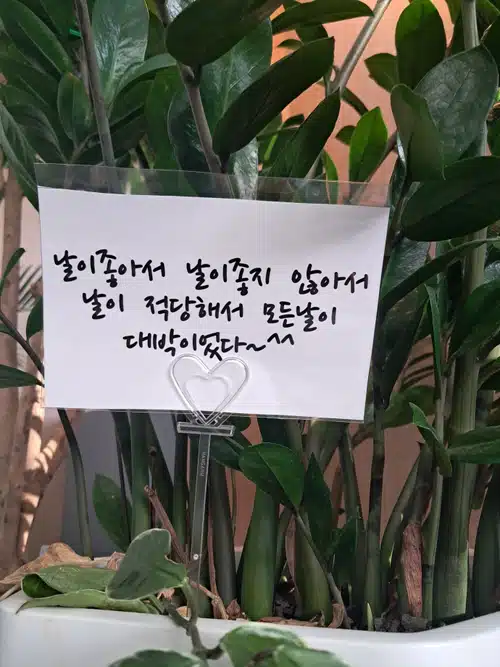 날이좋아서 날이좋지 않아서
날이 적당해서 모든날이
대박이었다~^^